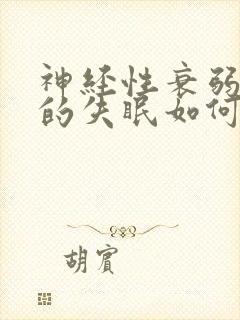 神经性衰弱
的失眠如何
胡賓